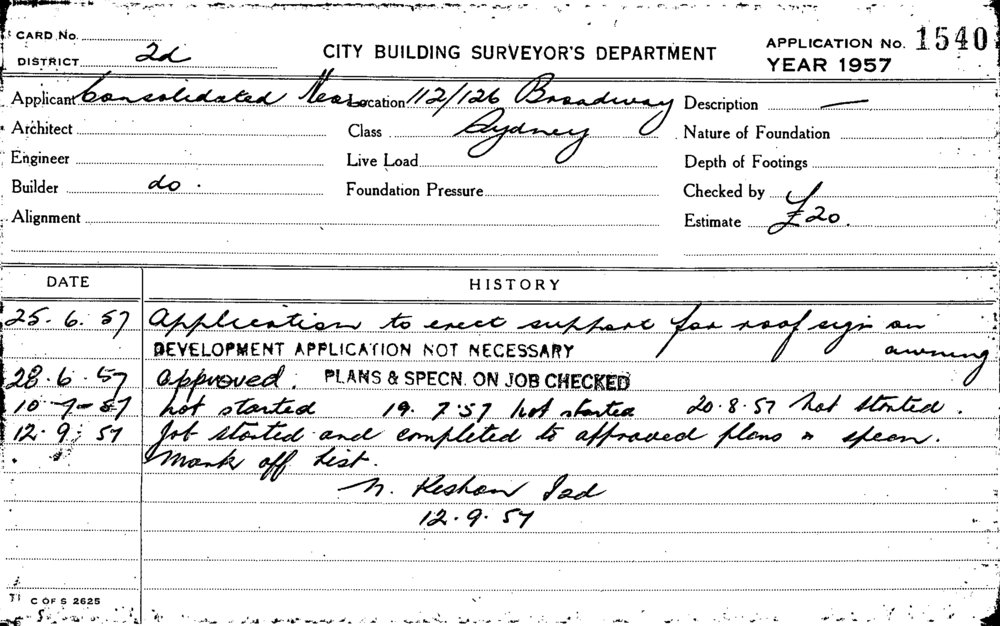 CARD No.
DISTRICT 2d
CITY BUILDING SURVEYOR'S DEPARTMENT
APPLICATION No. 1540
YEAR 1957
Applicant Consolidated Neon Location 112/126 Broadway Description —
Architect Class Sydney Nature of Foundation
Engineer Live Load Depth of Footings
Builder do. Foundation Pressure Checked by
Alignment Estimate £20.
DATE HISTORY
25.6.57 Application to erect support for roof sign on awning
DEVELOPMENT APPLICATION NOT NECESSARY
28.6.57 approved. PLANS & SPECN. ON JOB CHECKED
10-7-57 not started 19.7.57 not started 20.8.57 Not started.
12.9.57 Job started and completed to approved plans & specn.
Mark off List.
N. 2d
12.9.57
C OF S 2625